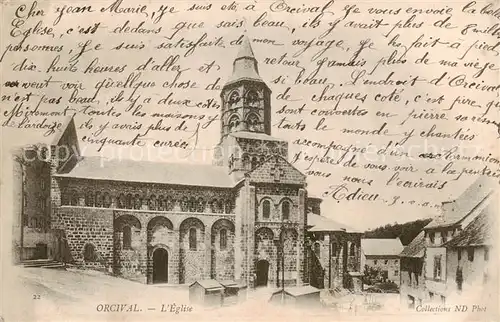 Cher Jean Marie, Je suis été à Orcival, Je vous envoie la be
Eglise, c'est dedans que s'est beau, ils y avait plus de 6 mille
personnes, Je suis satisfaite de mon voyage, Je les fait à pied
dix huit heures d'aller et retour Jamais plus de ma vie Je
avoir vu quelque chose de si beau. L'endroit d'Orciv
n'est pas beau, il y a deux côtes de chaques coté, c'est pire que
Miremont toutes les maisons sont couvertes en pierre
de l'ardoise, ils y avais plus de tout le monde y chantées
cinquante curée, accompagnée d'un harmonium
J'espère de vous voir à bientôt
J'écrirais
Adieu
22 ORCIVAL. — L'Église
Collections ND Phot